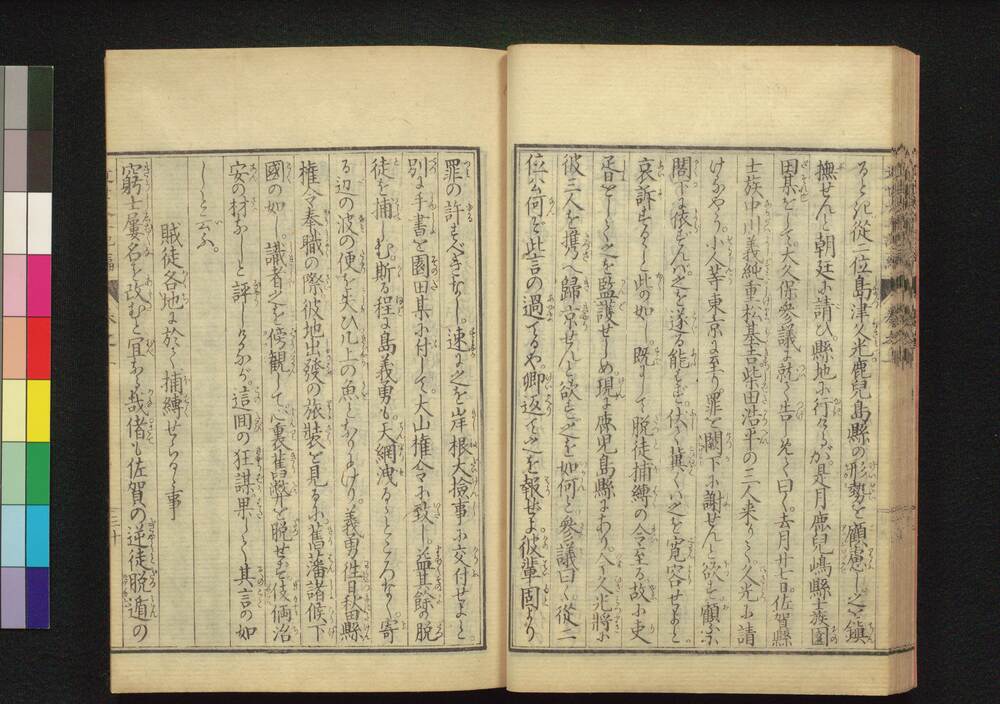 ると紀從二位島津久光鹿兒島縣の形勢を顧慮し之を鎭
撫せんと朝廷に請ひ縣地に行くが是月鹿兒嶋縣士族園
田某をして大久保參議に就て告しめて曰く去月廿七日佐賀縣
士族中川義純重松基吉柴田浩平の三人来りて久光に請
けるやう小人等東京に至り罪を闕下に謝せんと欲す顧ふに
閤下に依ざれバ之を遂る能ハず伏て冀くハ之を寛容せよと
哀訴すること此の如し既にして脱徒捕縛の令至る故に吏
胥をして之を監護せしめ現に鹿兒島縣にあり久光將に
彼三人を携へ歸京せんと欲す之を如何と參議曰く從二
位公何ぞ此言の過てるや卿返て之を報ぜよ彼輩固より
罪の許すべきなし速に之を岸根大撿事に交付せよと
別に手書を園田某に付して大山權令に致し益其餘の脱
徒を捕しむ斯る程に島義勇も天網洩るゝところなく寄
る辺の波の便を失ひ几上の魚となりにけり義勇徃日秋田縣
權令奉職の際彼地出發の旅裝を見るに舊藩諸候下
國の如し識者之を傍観して心裏舊弊を脱せず伎倆治
安の材なしと評しけるが這回の狂謀果して其言の如
しと云ふ
賊徒各地に於て捕縛せらるゝ事
窮士屢名を改むと宜なる哉偖も佐賀の逆徒脱遁の
三十